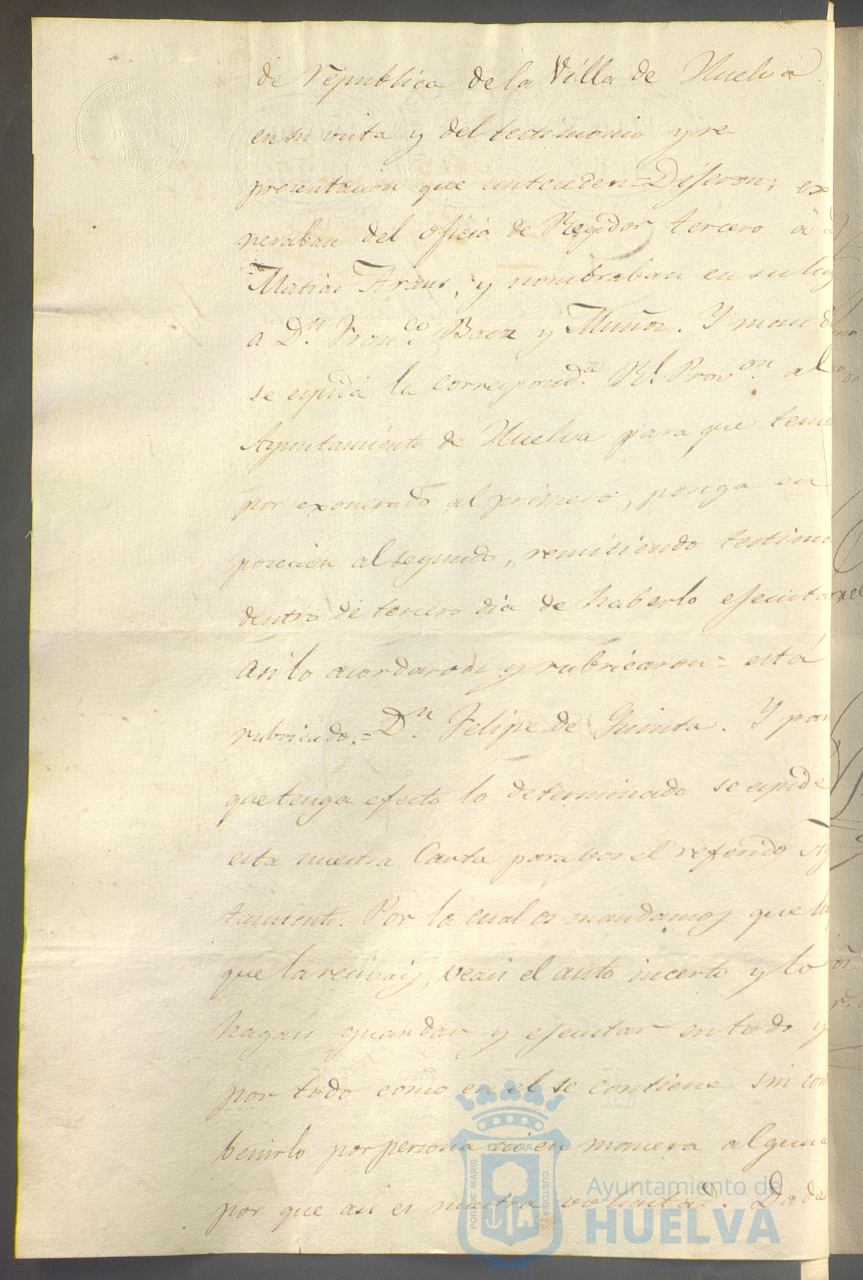 de republica de la Villa de Huelva
en su vista y del testimonio y re-
presentacion que anteceden = Dijeron; ex
neraban del oficio de Regidor tercero á D
Matias Araus, y nombraban en su lug
á D.n Fran.co Baez y Muñoz. Y mand
se espida la correspond.te R.l Prov.on al
Ayuntamiento de Huelva para que tenie
por exonerado al primero, ponga en
posecion al segundo, remitiendo testimo
dentro de tercero dia de haberlo ejecuta
Asi lo acordaron y rubricaron = está
rubricado. = D.n Felipe de Quinta. Y par
que tenga efecto lo determinado se espide
esta nuestra Carta para vos el referido Ay
tamiento. Por la cual os mandamos que
que la recivais, veais el auto incerto y lo
hagais guardar y ejecutar en todo y
por todo como en el se contiene sin con
benirlo por persona ni en manera alguna
por que asi es nuestra voluntad. Dada
PORTUS MARIS
ET TERRAE
CUSTODIA
Ayuntamiento de
HUELVA